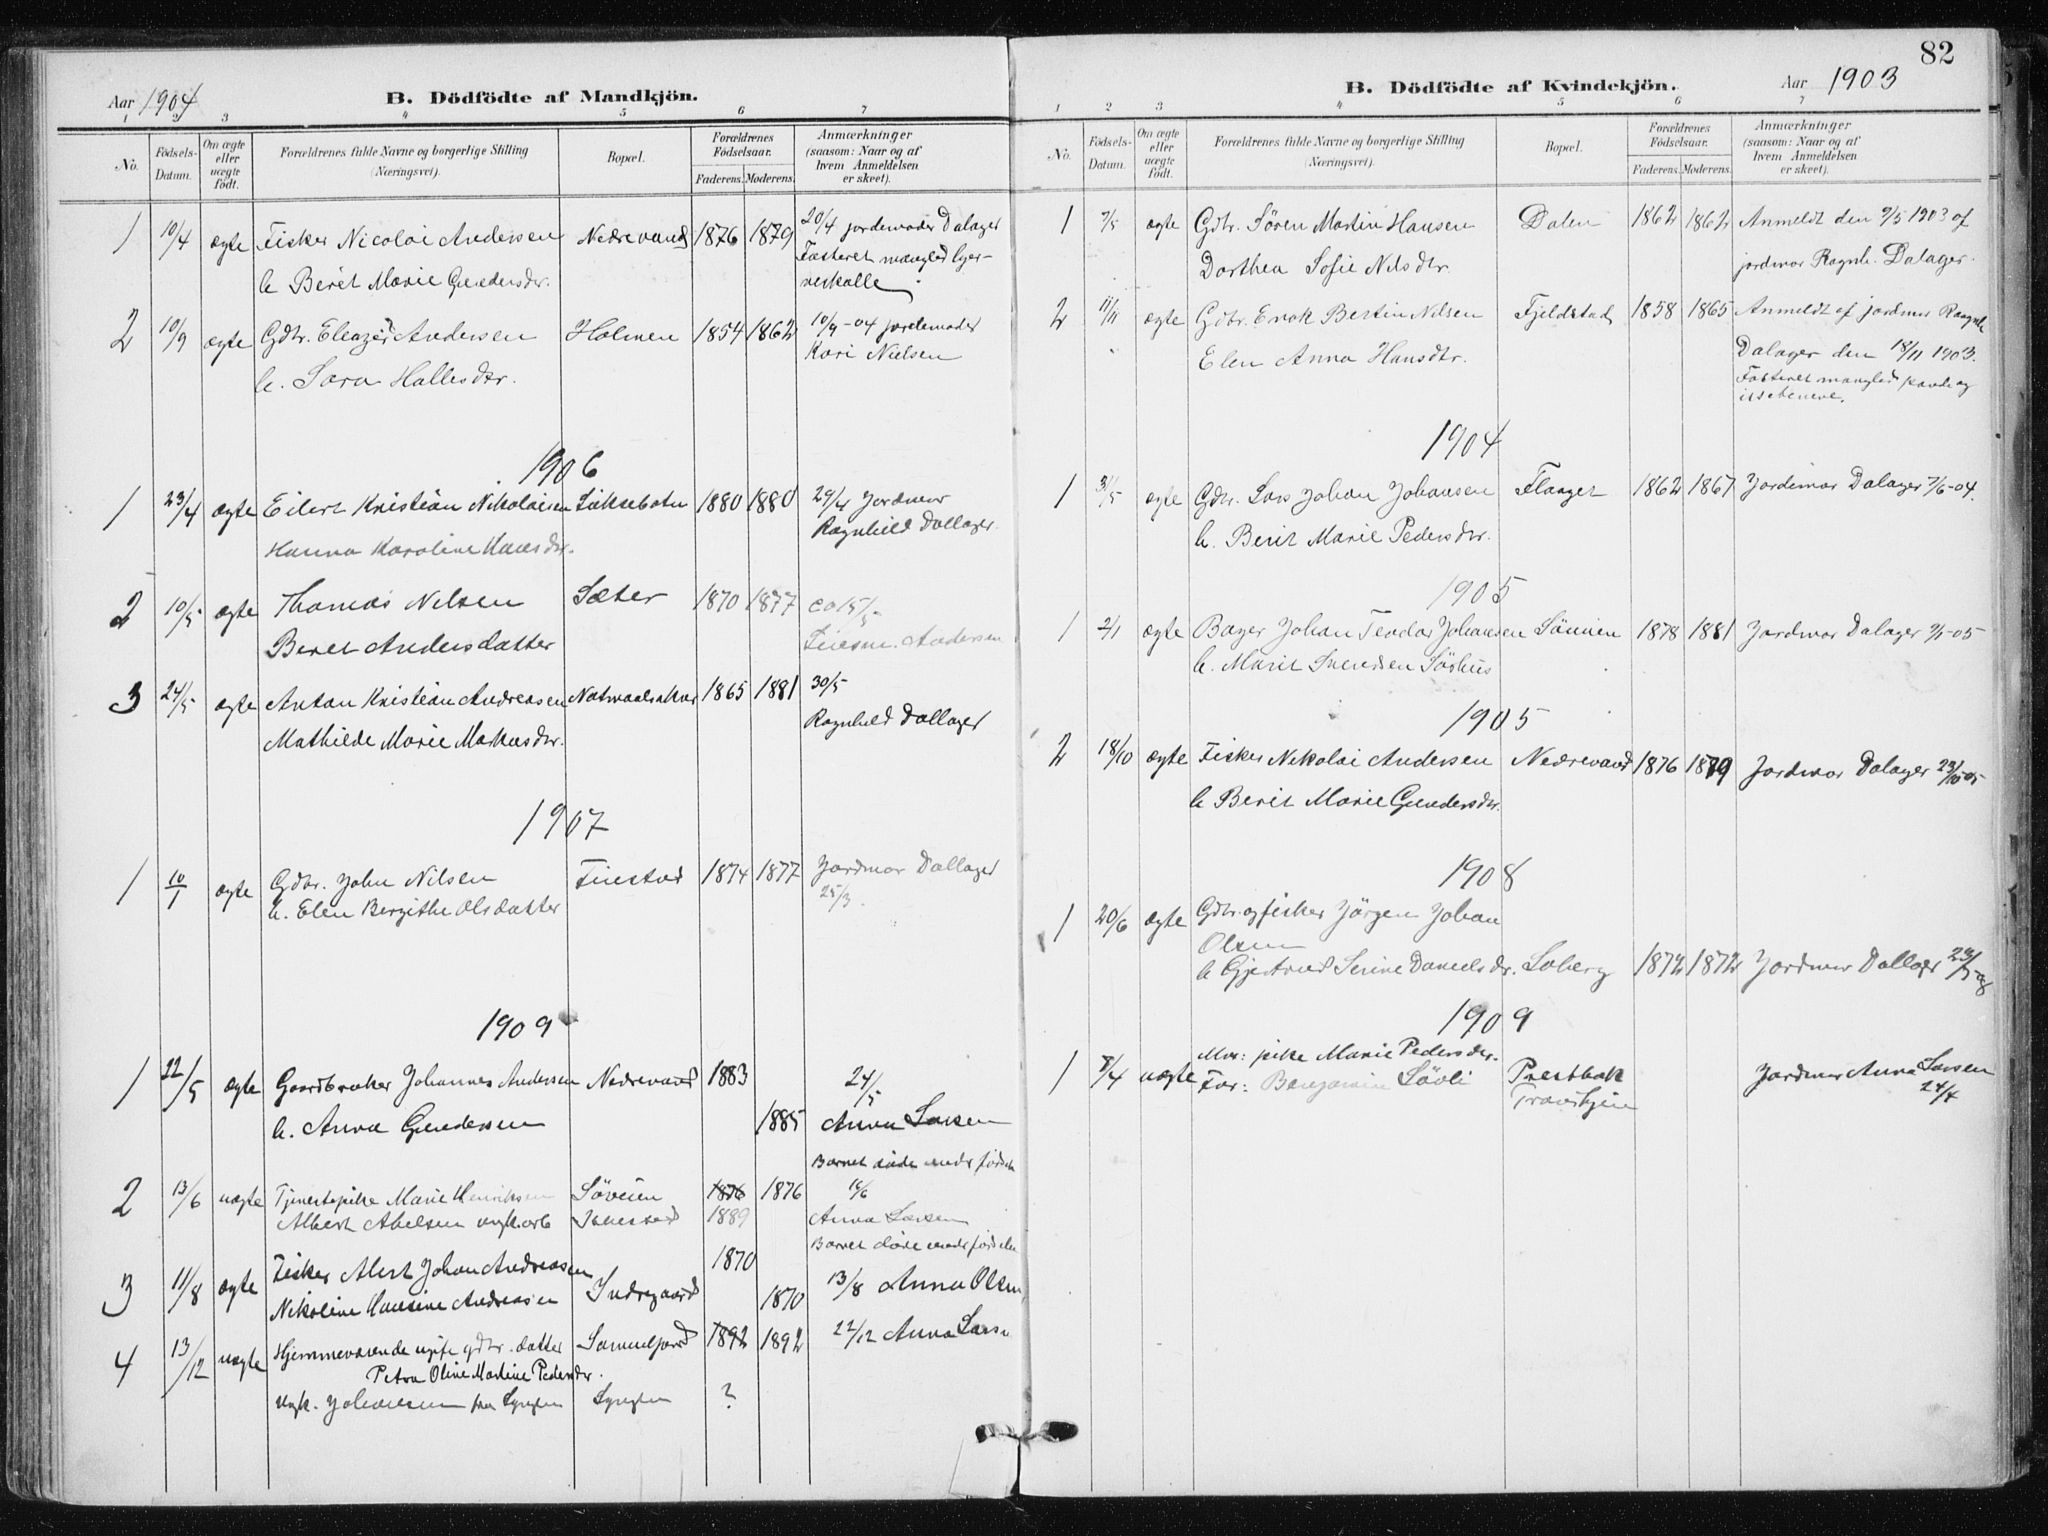 Aar 1904
B. Dödfödte af Mandkjön.
1 2 3 4 5 6 7
No.
Födsels-Datum.
Om ægte eller uægte født.
Forældrenes fulde Navne og borgerlige Stilling
(Næringsvei).
Bopæl.
Forældrenes Födselsaar.
Faderens. Moderens.
Anmærkninger
(saasom: Naar og af
hvem Anmeldelsen
er skeet).
1 10/4 ægte Fisker Nicolai Andersen Nedrevand 1876 1879 20/4 jordemoder Dalager
h. Berit Marie Gundersdtr. Fosteret mangled hjer-
neskalle.
2 10/9 ægte Gdbr. Eleazer Andersen Holmen 1854 1862 10/9-04 jordemoder
h. Sara Hallesdtr. Kari Nielsen
1906
1 23/4 ægte Eilert Kristian Nikolaisen 1880 1880 29/4 Jordmor
Hanna Karoline Hansdtr. Ragnhild Dallager.
2 10/5 ægte Thomas Nilsen Sæter 1870 1877 ca 15/5
Beret Andersdatter Andersen
3 24/5 ægte Anton Kristian Andreasen 1865 1881 30/5
Mathilde Marie Markusdtr. Ragnhild Dallager
1907
1 10/1 ægte Gdbr. John Nilsen Finstad 1874 1877 Jordmor Dallager
h. Elen Bergithe Olsdatter 25/3.
1909
1 22/5 ægte Gaardbruker Johannes Andersen Nedrevand 1883 24/5
h. Anna Gundersen 1885 Anna Larsen
Barnet døde under fødselen
2 13/6 uægte Tjenestepike Marie Henriksen Søveien 1876 1876 16/6
Albert Abelsen ungk. arb 1889 Anna Larsen
Barnet døde under fødselen
3 11/8 ægte Fisker Alert Johan Andreasen 1870
Nikoline Hansine Andreasen Indregaard 1870 13/8 Anna Olsen
4 13/12 uægte Hjemmeværende ugift gdbr. datter Samueljord 1892 1892 22/12 Anna Larsen
Petra Oline Martine Pedersdtr.
ungk. Johansen fra Lyngen Lyngen ?
82
B. Dödfödte af Kvindekjön.
Aar 1903
1 2 3 4 5 6 7
No.
Födsels-Datum.
Om ægte eller uægte født.
Forældrenes fulde Navne og borgerlige Stilling
(Næringsvei).
Bopæl.
Forældrenes Födselsaar.
Faderens. Moderens.
Anmærkninger
(saasom: Naar og af
hvem Anmeldelsen
er skeet).
1 7/5 ægte Gdbr. Sören Martin Hansen Dalen 1862 1862 Anmeldt den 9/5 1903 af
Dorthea Sofie Nilsdtr. jordmor Ragnh. Dalager.
2 11/11 ægte Gdbr. Enok Bertin Nilsen Fjeldstad 1858 1865 Anmeldt af jordmor Ragnh.
Elen Anna Hansdtr. Dalager den 18/11 1903.
Fosteret mangled pande og
issebenene.
1904
1 31/5 ægte Gdbr. Lars Johan Johansen 1862 1867 Jordmor Dalager 7/6-04.
h. Berit Marie Pedersdtr.
1905
1 2/1 ægte Bager Johan Teodor Johansen 1878 1881 Jordmor Dalager 9/1-05
h. Marit Svendsen Sörhus
1905
2 18/10 ægte Fisker Nikolai Andersen Nedrevand 1876 1879 Jordmor Dalager 23/10-05
h Berit Marie Gundersdtr.
1908
1 20/6 ægte Gdbr. og fisker Jörgen Johan
Olsen
h Gjertrud Serine Danielsdr. Soberg 1872 1872 Jordmor Dallager
1909
1 7/4 uægte Mor: pike Marie Pedersdtr. Prestbak Jordmor Anna Larsen
Far: Benjamin Lövli 24/4